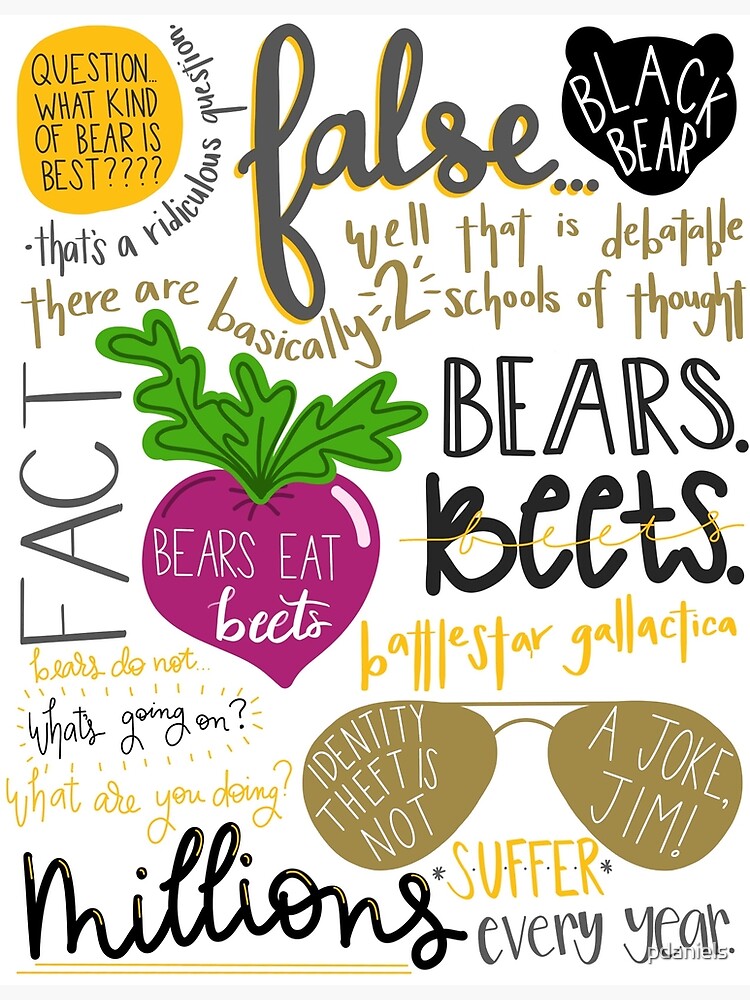 QUESTION...
WHAT KIND
OF BEAR IS
BEST????
•that's a ridiculous question.
false...
BLACK
BEAR
well that is debatable
there are basically 2 schools of thought
FACT
BEARS EAT
beets
BEARS.
Beets.
beets
battlestar gallactica
bears do not...
What's going on?
What are you doing?
IDENTITY
THEFT IS
NOT
A JOKE,
JIM!
Millions
*SUFFER*
every year.
pdaniels